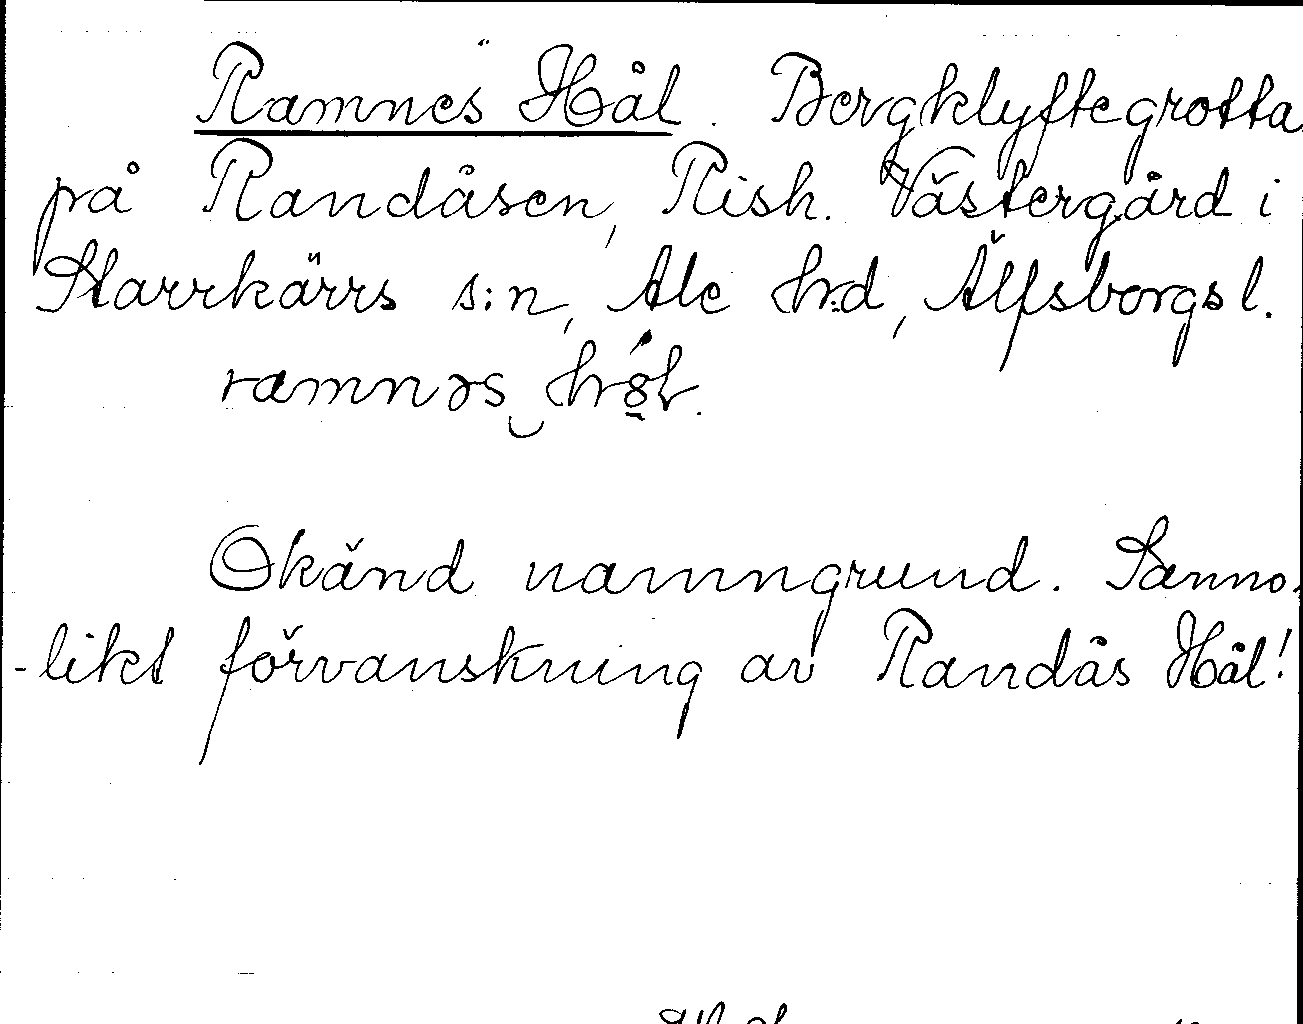 Ramnes Hål. Bergklyftegrotta
på Randåsen, Rish. Västergård i
Starrkärrs s:n, Ale h:d, Älfsborgs l.
Okänd namngrund. Sanno-
-likt förvanskning av Randås Hål!